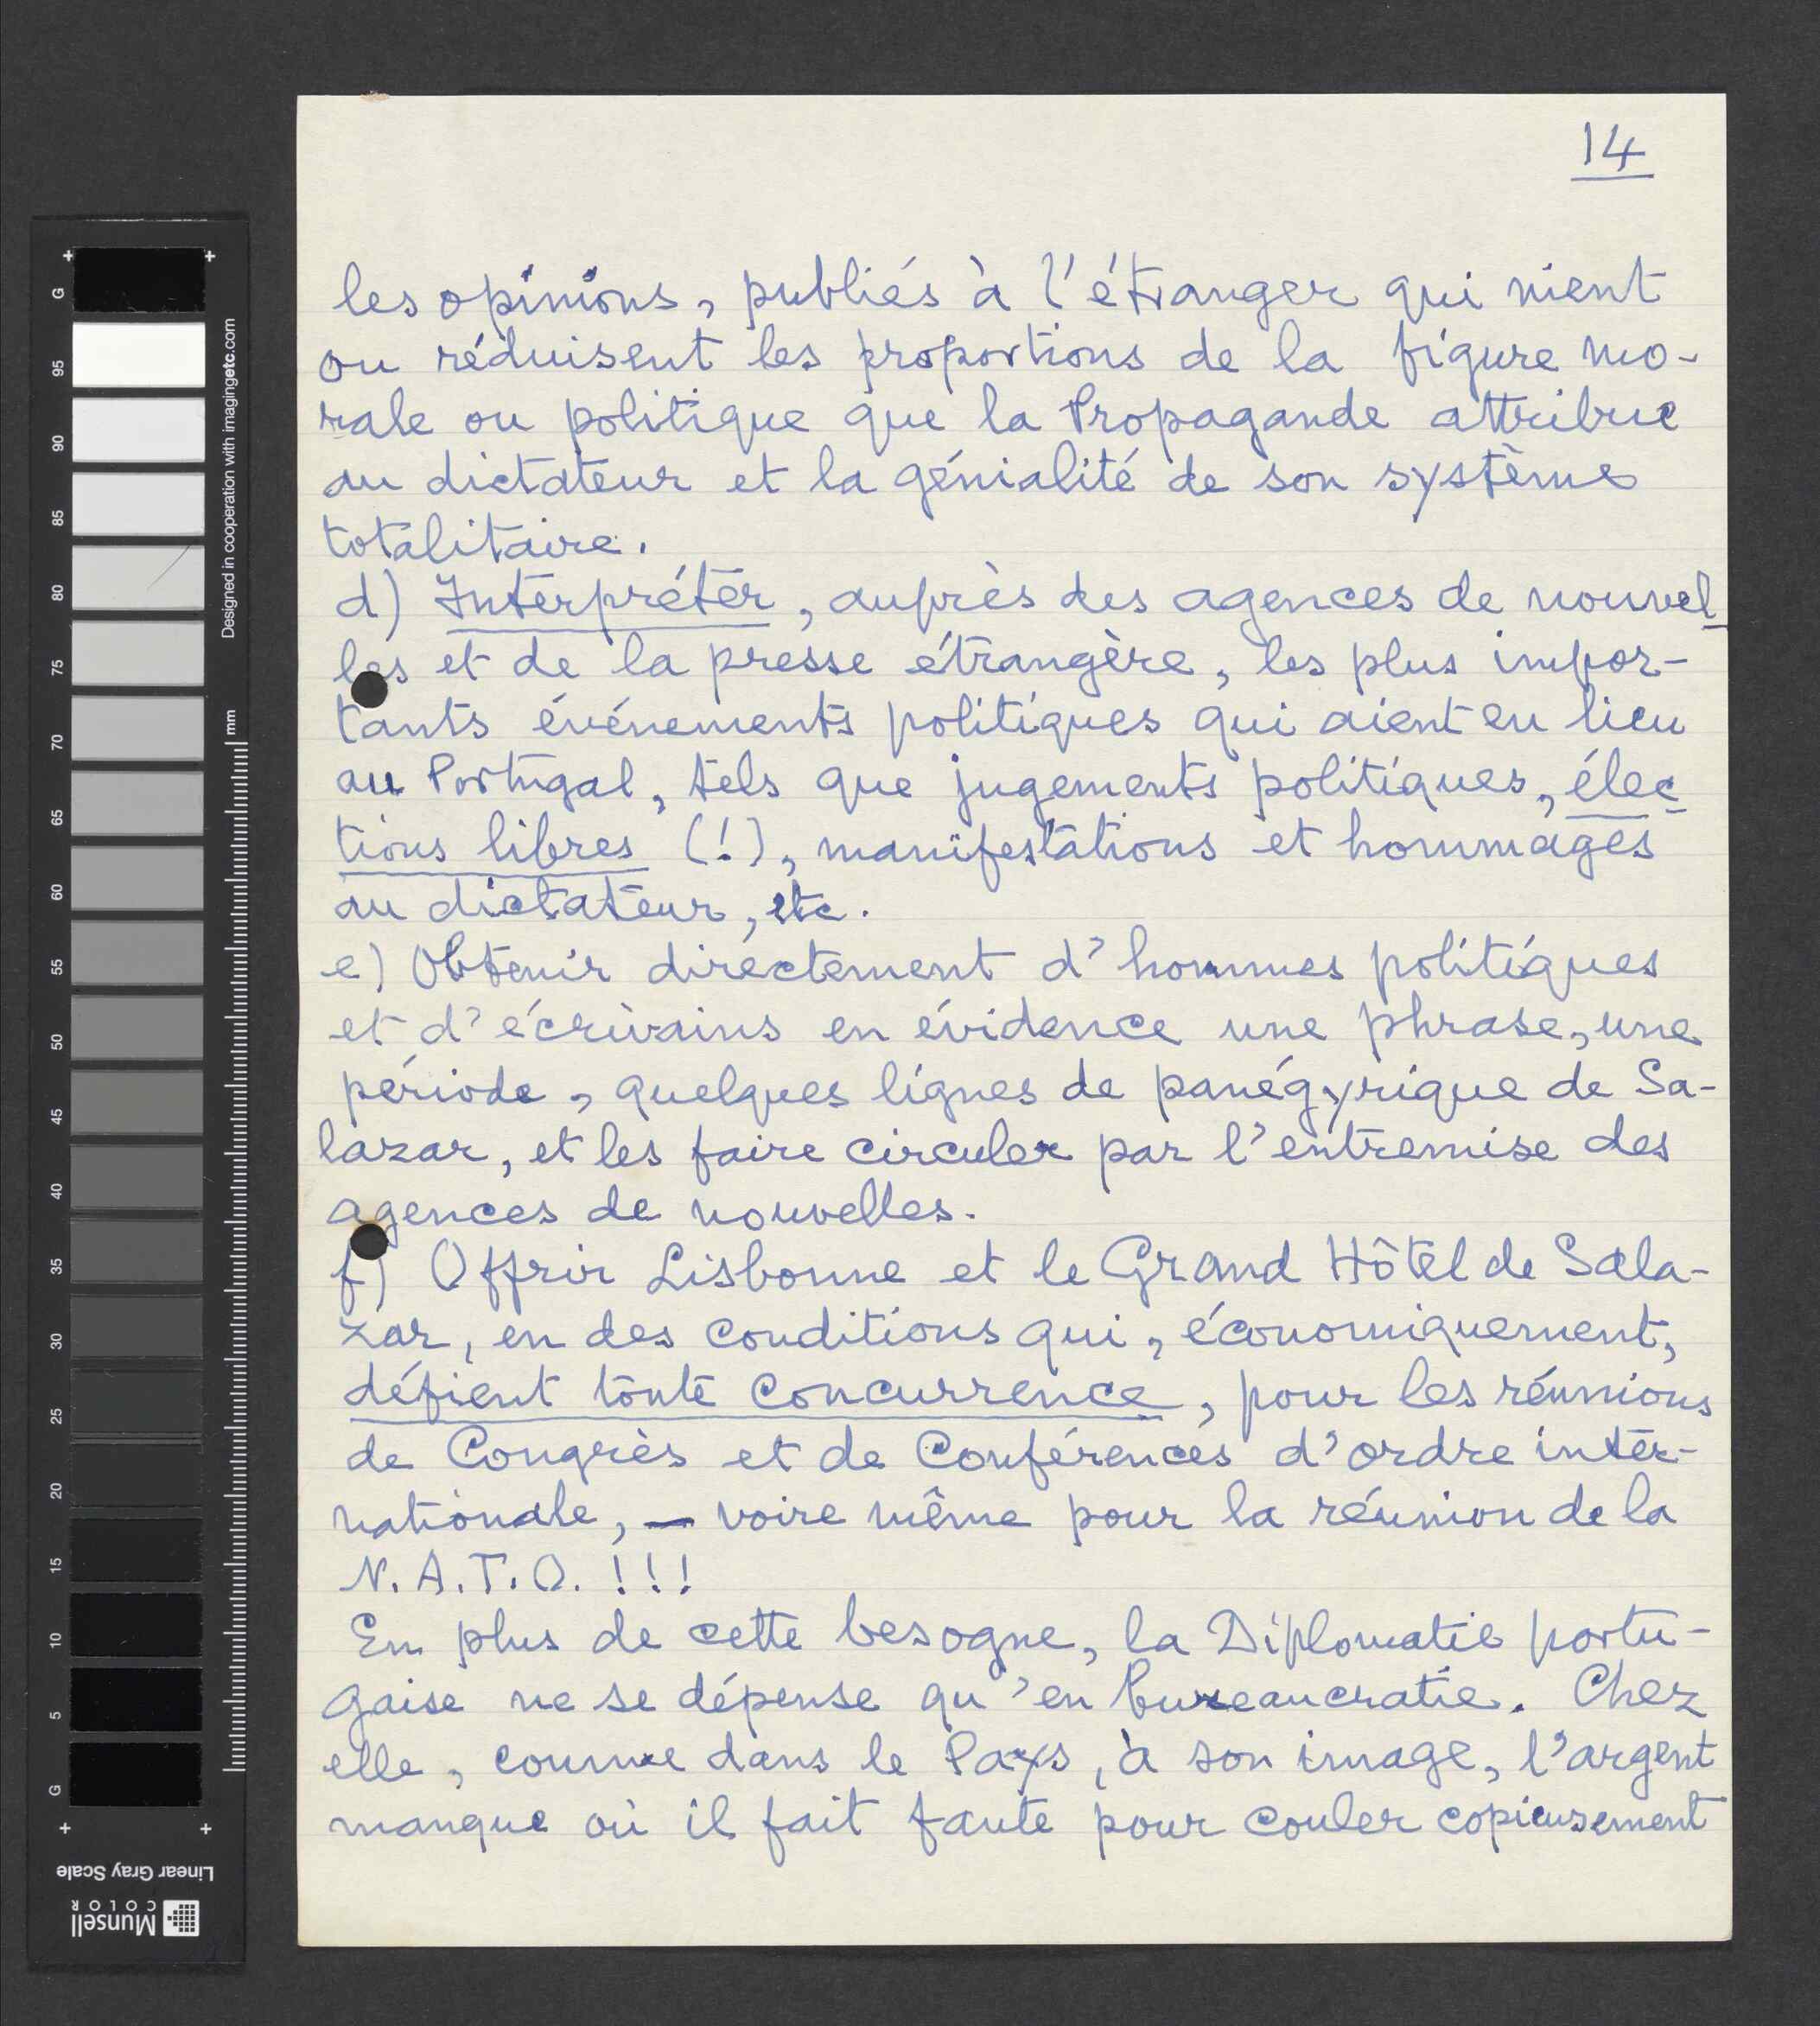 14
les opinions, publiés à l'étranger qui nient
ou réduisent les proportions de la figure mo-
rale ou politique que la Propagande attribue
au dictateur et la génialité de son système
totalitaire.
d) Interpréter, auprès des agences de nouvel
les et de la presse étrangère, les plus impor-
tants événements politiques qui aient eu lieu
au Portugal, tels que jugements politiques, élec
tions libres (!), manifestations et hommages
au dictateur, etc.
e) Obtenir directement d'hommes politiques
et d'écrivains en évidence une phrase, une
période, quelques lignes de panégyrique de Sa-
lazar, et les faire circuler par l'entremise des
agences de nouvelles.
f) Offrir Lisbonne et le Grand Hôtel de Sala-
zar, en des conditions qui, économiquement,
défient toute concurrence, pour les réunions
de Congrès et de Conférences d'ordre inter-
nationale, — voire même pour la réunion de la
N.A.T.O. !!!
En plus de cette besogne, la Diplomatie portu-
gaise ne se dépense qu'en bureaucratie. Chez
elle, comme dans le Pays, à son image, l'argent
manque où il fait faute pour couler copieusement
G
95
90
85
80
75
70
65
60
55
50
45
40
35
30
25
20
15
10
5
G
Designed in cooperation with imagingetc.com
mm
Linear Gray Scale
Munsell
COLOR